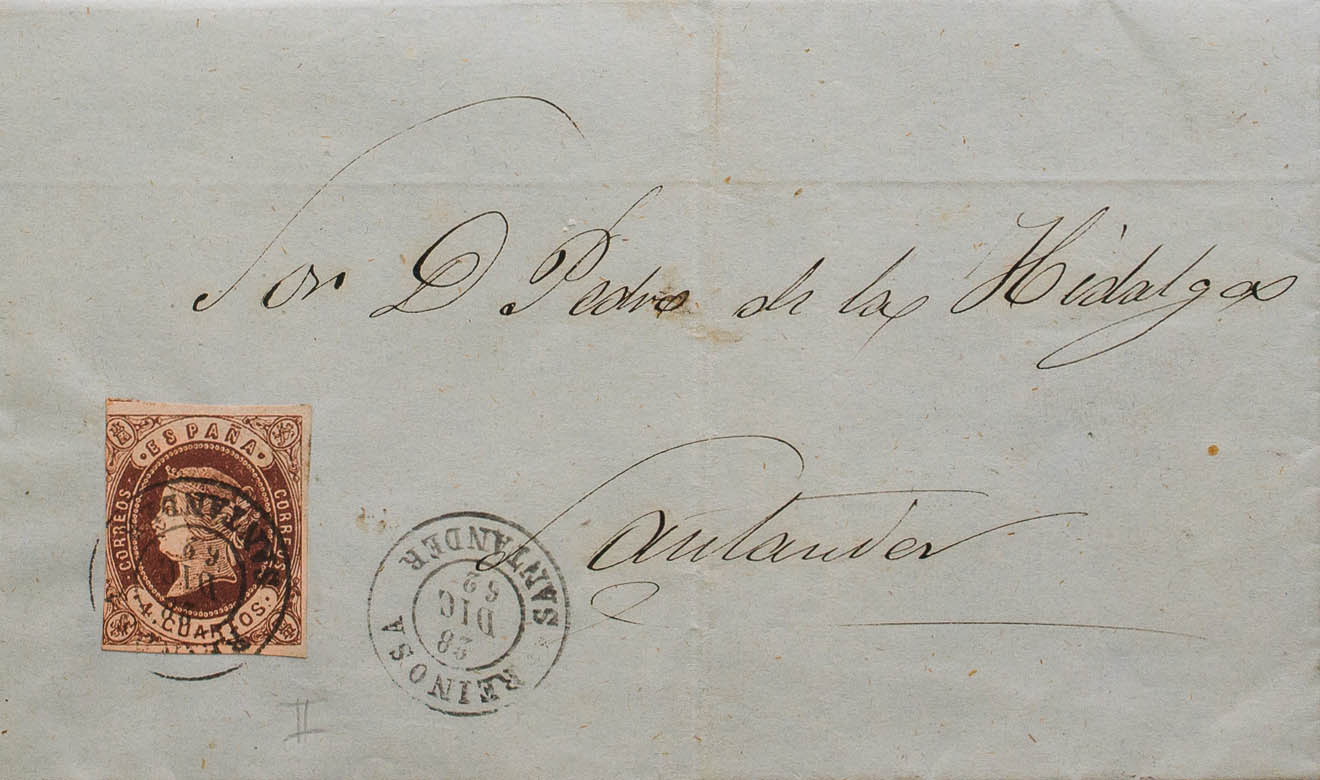 Sor D Pedro de las Hidalgas
Santander
ESPAÑA
CORREOS
CORREOS
4. CUARTOS.
SANTANDER
REINOSA
28
DIC
62
II